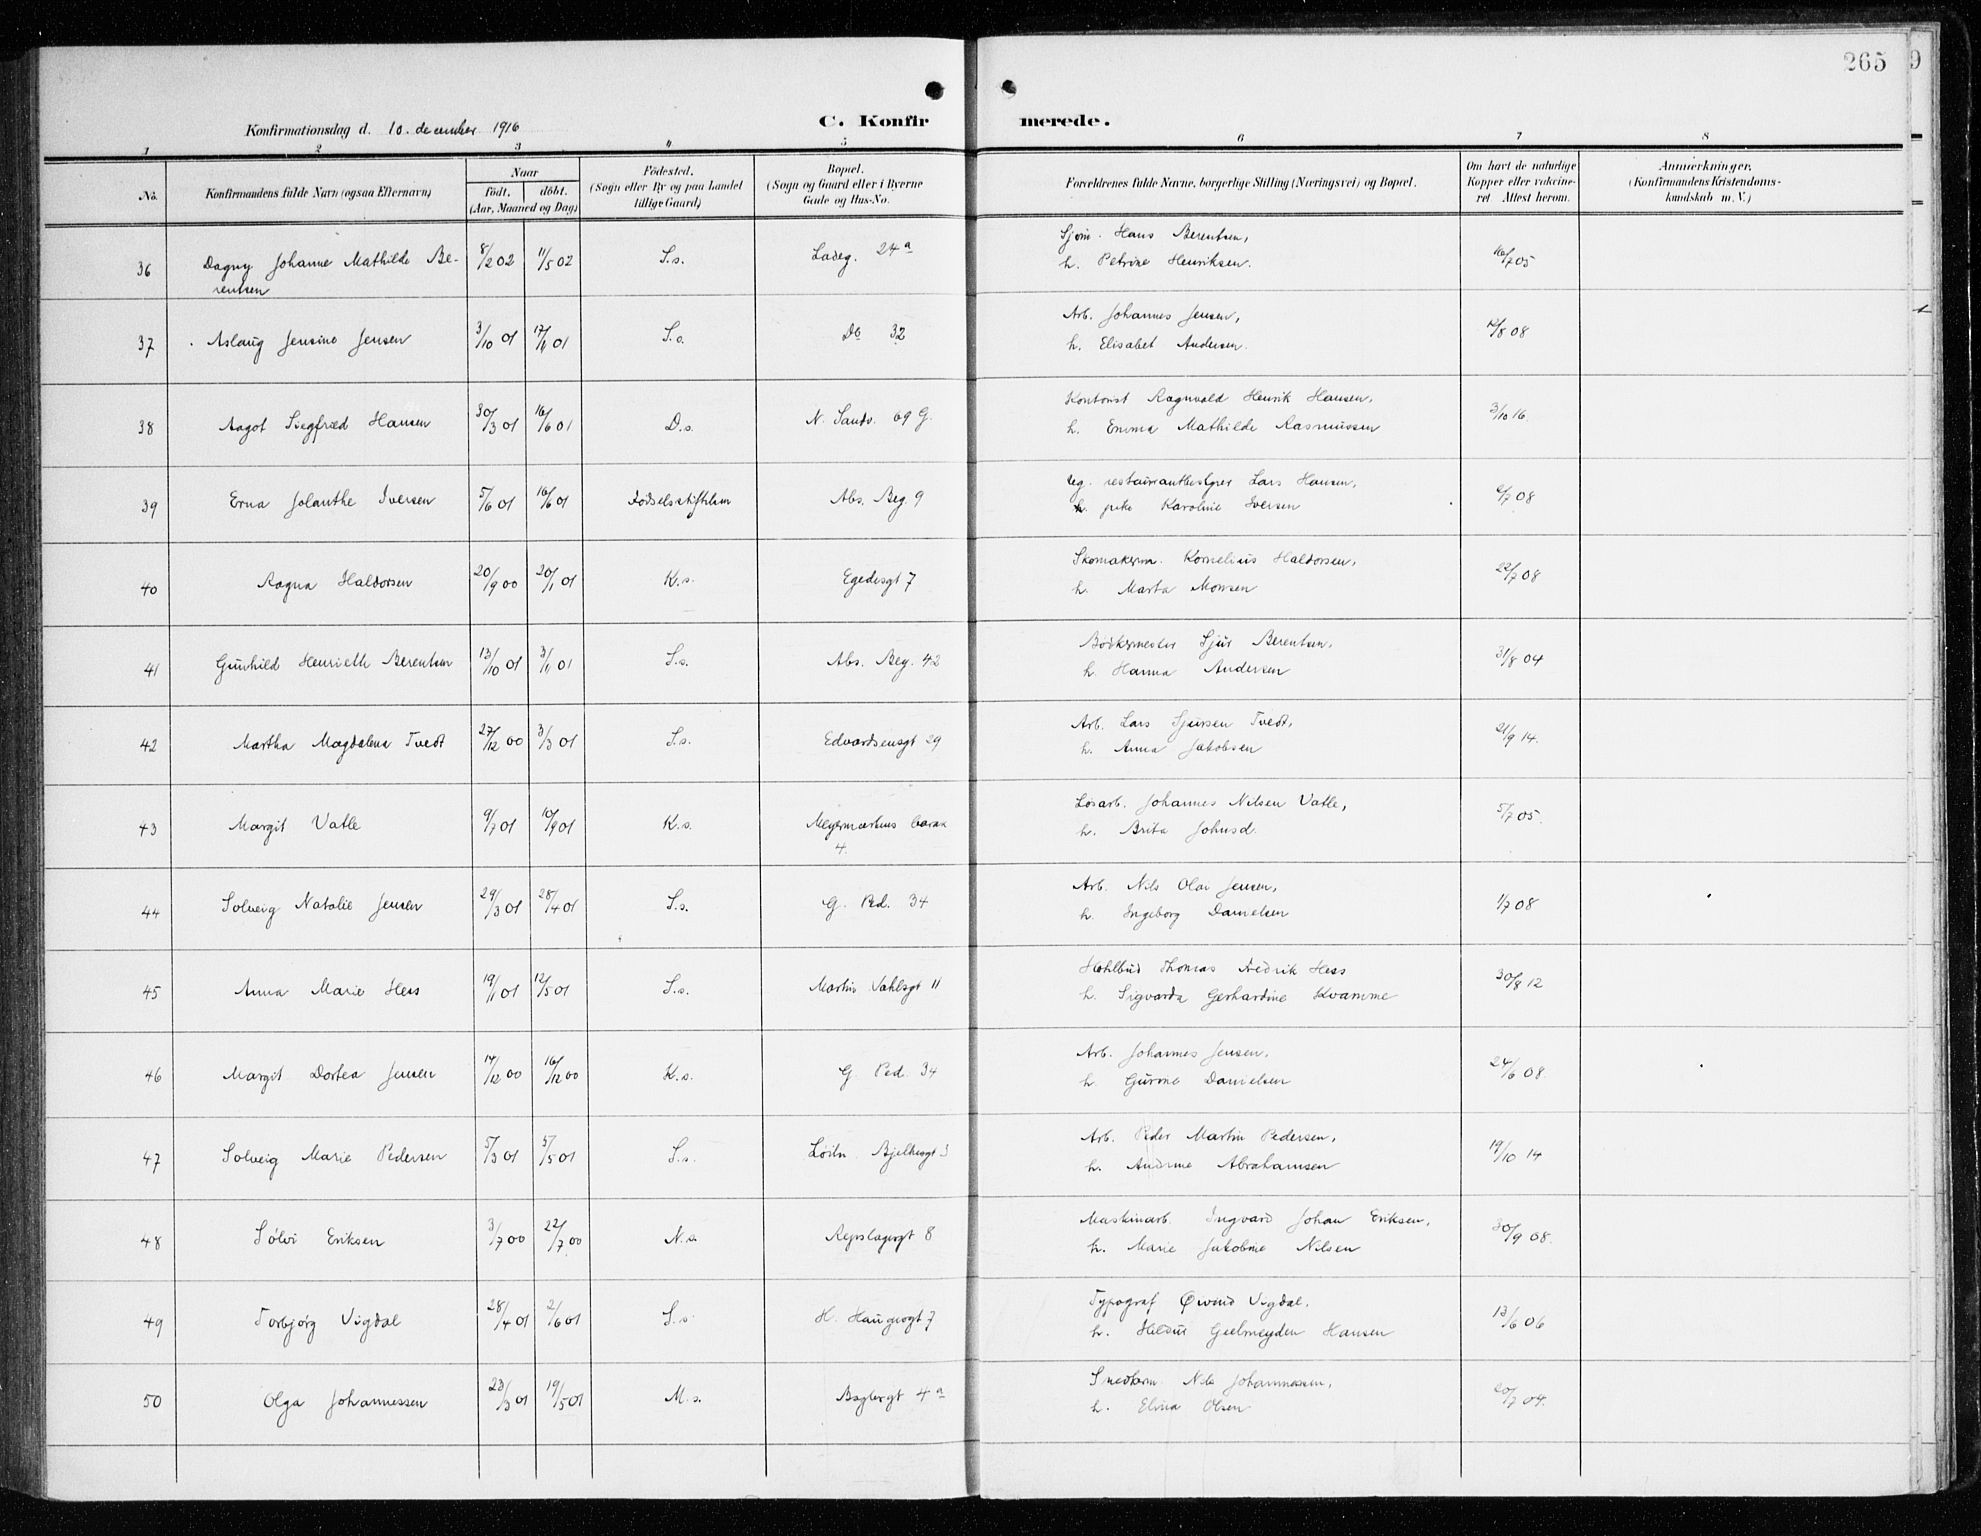 265
9
C. Konfirmerede.
Konfirmationsdag d. 10. december 1916
1 2 3 4 5 6 7 8
No. Konfirmandens fulde Navn (ogsaa Efternavn) Naar födt. döbt. (Aar, Maaned og Dag) Födested. (Sogn eller By og paa Landet tillige Gaard) Bopæl. (Sogn og Gaard eller i Byerne Gade og Hus-No. Forældrenes fulde Navne, borgerlige Stilling (Næringsvei) og Bopæl. Om havt de naturlige Kopper eller vakcineret. Attest herom. Anmærkninger. (Konfirmandens Kristendomskundskab m. V.)
36 Dagny Johanne Mathilde Be- 8/2 02 11/5 02 S.s. Ladeg. 24a Sjøm. Hans Berentsen, 16/7 05
rentsen h. Petrine Henriksen.
37 Aslaug Jensine Jensen 3/10 01 17/11 01 S.s. Do 32 Arb. Johannes Jensen, 12/8 08
h. Elisabet Andersen.
38 Aagot Siegfried Hansen 30/3 01 16/6 01 D.s. N. Sandv. 69 G. Kontorist Ragnvald Henrik Hansen, 3/10 16.
h. Emma Mathilde Rasmussen
39 Erna Jolanthe Iversen 5/6 01 16/6 01 Fødselsstiftelsen Abs. Beg. 9 Lars Hansen, 6/7 08
pike Karoline Iversen
40 Ragna Haldorsen 20/9 00 20/1 01 K.s. Egedesgt 7 Skomakerm. Kornelius Haldorsen, 22/7 08
h. Marta Monsen
41 Gunhild Henriette Berentsen 13/10 01 3/11 01 S.s. Abs. Beg. 42 Bødkermester Sjur Berentsen, 31/8 04
h. Hanna Andersen
42 Martha Magdalena Tvedt 27/12 00 3/3 01 S.s. Edvardsensgt 29 Arb. Lars Sjursen Tvedt, 21/9 14.
h. Anna Jakobsen
43 Margit Vatle 9/7 01 10/9 01 K.s. Meyermarkens barak Løsarb. Johannes Nilsen Vatle, 5/7 05.
4. h. Brita Johnsd.
44 Solveig Natalie Jensen 29/3 01 28/4 01 S.s. G. Ped. 34 Arb. Nils Olai Jensen, 1/7 08
h. Ingeborg Danielsen
45 Anna Marie Hess 19/1 01 12/5 01 S.s. Martin Vahlsgt 11 Thomas Fredrik Hess 30/8 12
h. Sigvarda Gerhardine Kvamme
46 Margit Dortea Jensen 14/12 00 16/12 00 K.s. G. Ped. 34 Arb. Johannes Jensen, 24/6 08.
h. Gurine Danielsen
47 Solveig Marie Pedersen 5/3 01 5/5 01 S.s. Løitn. Bjelkesgt 3 Arb. Peder Martin Pedersen, 19/10 14
h. Andrine Abrahamsen
48 Sølvi Eriksen 3/7 00 22/7 00 N.s. Repslagergt 8 Maskinarb. Ingvard Johan Eriksen, 30/9 08.
h. Marie Jakobine Nilsen
49 Torbjørg Vigdal 28/4 01 2/6 01 S.s. H. Haugesgt 7 Typograf Øivind Vigdal, 13/6 06
h. Hildur Geelmeyden Hansen
50 Olga Johannessen 23/3 01 19/5 01 M.s. 4a Snedkerm. Nils Johannessen, 20/7 04.
h. Elina Olsen